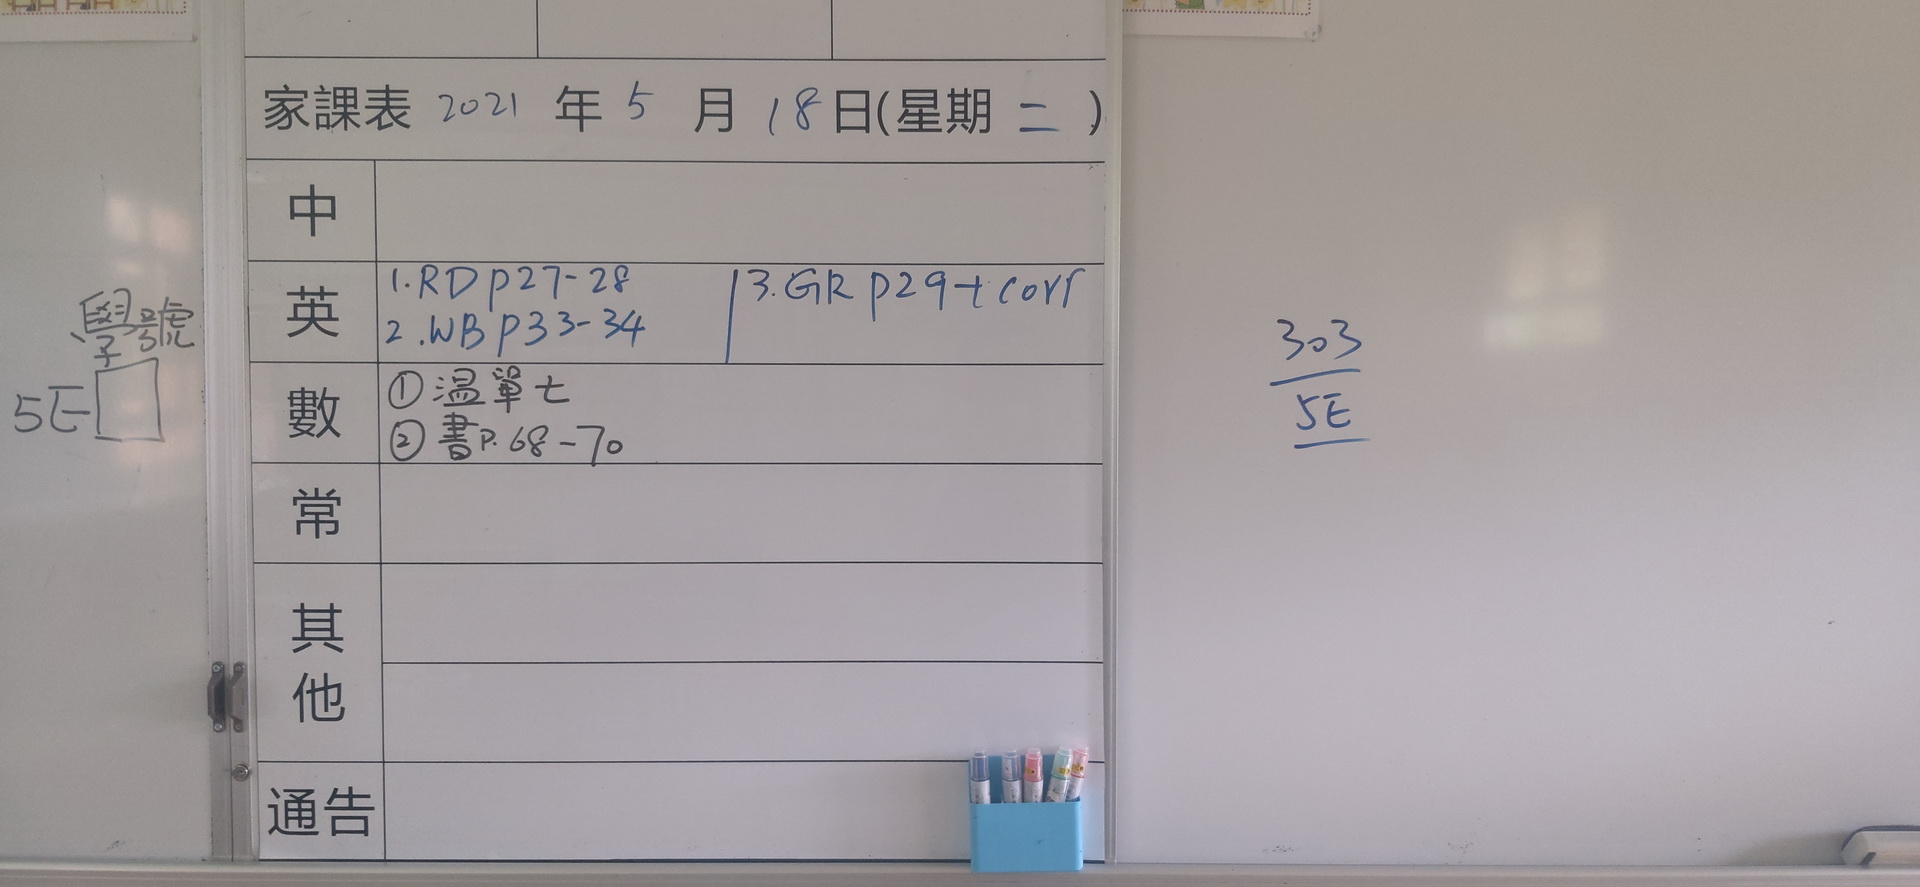 家課表 2021 年 5 月 18 日(星期 二 )
中
英
1. RD p27-28
2. WB p33-34
3. GR p29 + corr
數
① 温單七
② 書P. 68-70
常
其他
通告
學號
5E
303
5E